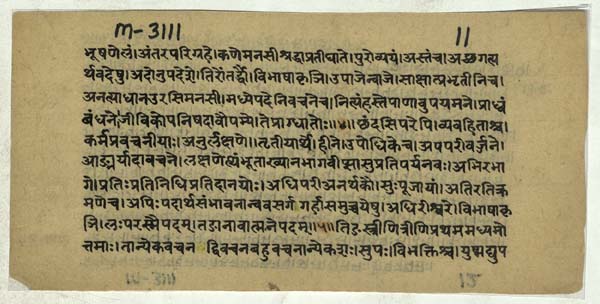 m-3111
11
भूषणेलं।अंतरपरिगहे।कणेमनसीश्रद्धाप्रतीघाते।पुरोव्ययं।अस्तंच।अछगत्य
र्थवदेषु।अदोनुपदेशे।तिरोंतर्द्धौ।विभाषाकृञि।उपाजेन्वाजे।साक्षात्प्रभृतीनिच।
अनत्याधानउरसिमनसी।मध्येपदेनिवचनेच।नित्यंहस्तेपाणावुपयमने।प्राध्वं
बंधने।जीविकोपनिषदावौपम्ये।तेप्राग्धातोः॥४॥छंदसिपरेपि।व्यवहिताश्च।
कर्मप्रवचनीयाः।अनुर्लक्षणे।तृतीयार्थे।हीने।उपोधिकेच।अपपरीवर्ज्जने।
आङ्मर्यादावचने।लक्षणेत्थंभूताख्यानभागवीप्सासुप्रतिपर्यनवः।अभिरभा
गे।प्रतिःप्रतिनिधिप्रतिदानयोः।अधिपरीअनर्थकौ।सुःपूजायां।अतिरतिक्र
मणेच।अपिःपदार्थसंभावनान्ववसर्ग्ग गर्हासमुच्चयेषु।अधिरीश्वरे।विभाषाकृ
ञि।लःपरस्मैपदम्।तङानावात्मनेपदम्॥५॥तिङःस्त्रीणित्रीणिप्रथममध्यमो
त्तमाः।तान्येकवचन द्विवचनबहुवचनान्येकशः।सुपः।विभक्तिश्च।युष्मद्युप